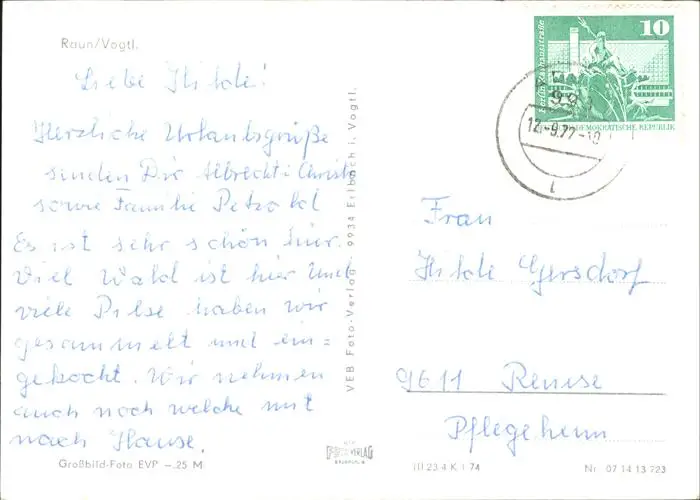 Raun/Vogtl.
Liebe Hilde!
Herzliche Urlaubsgrüße
senden Dir Albrecht u. Christa
sowie Familie Petzold
Es ist sehr schön hier.
Viel Wald ist hier und
viele Pilse haben wir
gesammelt und ein=
gekocht. Wir nehmen
auch noch welche mit
nach Hause.
Großbild-Foto EVP -.25 M
VEB Foto-Verlag 9934 Erlbach i. Vogtl.
FOTO VERLAG
ERLBACH
10
Berlin, Rathausstraße
DEUTSCHE DEMOKRATISCHE REPUBLIK
12.-9.77-10
Frau
Hilde Gersdorf
9611 Remse
Pflegeheim
III 23 4 K 1 74
Nr. 07 14 13 723